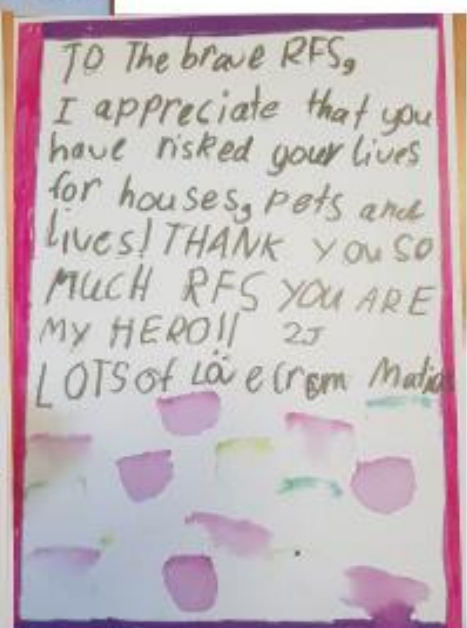 TO The brave RFS,
I appreciate that you
have risked your lives
for houses, pets and
lives! THANK YOU SO
MUCH RFS YOU ARE
MY HERO!! 2J
LOTS of Love from